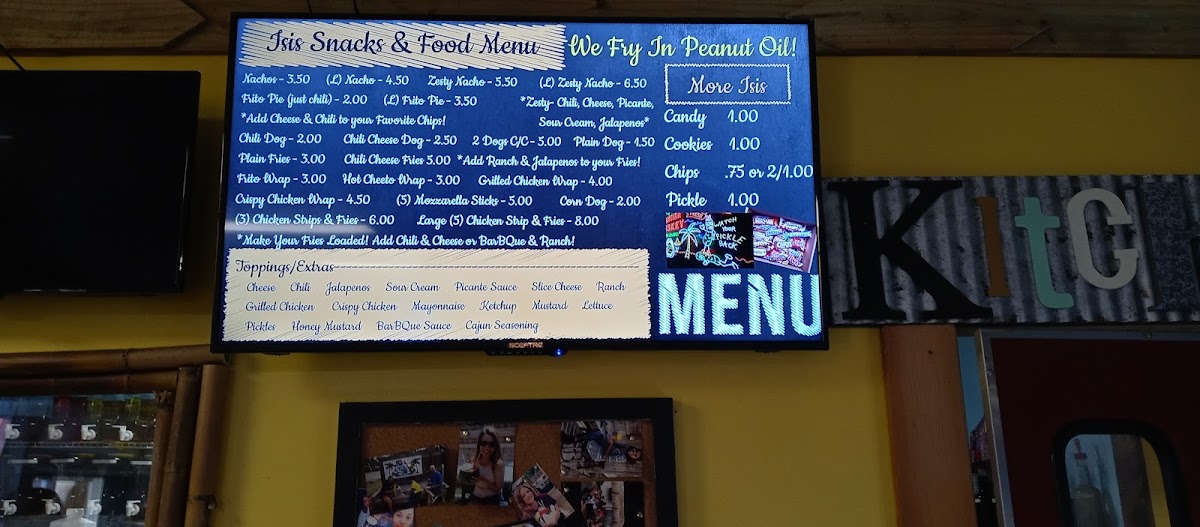 Isis Snacks & Food Menu
We Fry In Peanut Oil!
Nachos - 3.50 (L) Nacho - 4.50 Zesty Nacho - 5.50 (L) Zesty Nacho - 6.50
Frito Pie (just chili) - 2.00 (L) Frito Pie - 3.50 *Zesty- Chili, Cheese, Picante,
*Add Cheese & Chili to your Favorite Chips! Sour Cream, Jalapenos*
Chili Dog - 2.00 Chili Cheese Dog - 2.50 2 Dogs C/C - 5.00 Plain Dog - 1.50
Plain Fries - 3.00 Chili Cheese Fries 5.00 *Add Ranch & Jalapenos to your Fries!
Frito Wrap - 3.00 Hot Cheeto Wrap - 3.00 Grilled Chicken Wrap - 4.00
Crispy Chicken Wrap - 4.50 (5) Mozzarella Sticks - 5.00 Corn Dog - 2.00
(3) Chicken Strips & Fries - 6.00 Large (5) Chicken Strip & Fries - 8.00
*Make Your Fries Loaded! Add Chili & Cheese or BarBQue & Ranch!
Toppings/Extras
Cheese Chili Jalapenos Sour Cream Picante Sauce Slice Cheese Ranch
Grilled Chicken Crispy Chicken Mayonnaise Ketchup Mustard Lettuce
Pickles Honey Mustard BarBQue Sauce Cajun Seasoning
More Isis
Candy 1.00
Cookies 1.00
Chips .75 or 2/1.00
Pickle 1.00
WATCH
YOUR
PICKLE
BACK
MENU
SCEPTRE
KitC